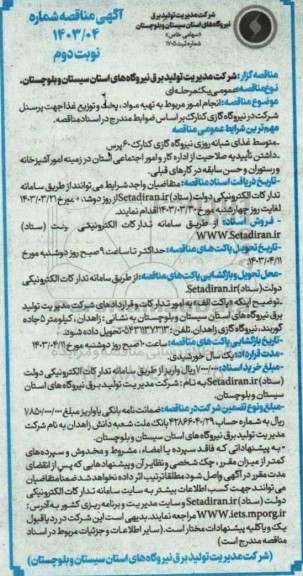 شرکت مدیریت تولید برق
نیروگاه‌های استان سیستان و بلوچستان
(سهامی خاص)
شماره ثبت ۱۷۰۵
آگهی مناقصه شماره
۱۴۰۳/۰۴
نوبت دوم
مناقصه گزار: شرکت مدیریت تولید برق نیروگاه‌های استان سیستان و بلوچستان.
نوع مناقصه: عمومی یک مرحله‌ای
موضوع مناقصه: انجام امور مربوط به تهیه مواد، پخت و توزیع غذا جهت پرسنل
شرکت در نیروگاه گازی کنارک بر اساس ضوابط مندرج در اسناد مناقصه.
مهم‌ترین شرایط عمومی مناقصه
-متوسط غذای شبانه روزی نیروگاه گازی کنارک ۶۰ پرس
-داشتن تأییدیه صلاحیت از اداره کار و امور اجتماعی استان در زمینه امور آشپزخانه
و رستوران و حسن سابقه در کارهای قبلی.
-تاریخ دریافت اسناد مناقصه: متقاضیان واجد شرایط می توانند از طریق سامانه
تدارکات الکترونیکی دولت (ستاد) Setadiran.ir از روز دوشنبه مورخ ۱۴۰۳/۰۳/۲۱
لغایت روز چهارشنبه مورخ ۱۴۰۳/۰۳/۳۰ اقدام نمایند.
- فروش اسناد: از طریق سامانه تدارکات الکترونیکی دولت (ستاد)
WWW.Setadiran.ir
-تاریخ تحویل پاکت های مناقصه: حداکثر تا ساعت ۹ صبح روز دوشنبه مورخ
۱۴۰۳/۰۴/۱۱
-محل تحویل و بازگشایی پاکت های مناقصه: از طریق سامانه تدارکات الکترونیکی
دولت (ستاد) Setadiran.ir.
-توضیح اینکه «پاکت الف» به امور تدارکات و قراردادهای شرکت مدیریت تولید
برق نیروگاه های استان سیستان و بلوچستان به نشانی: زاهدان، کیلومتر ۵ جاده
گوربند، نیروگاه گازی زاهدان. تلفن: ۰۵۴۳۱۱۳۷۲۱۳ تحویل داده شود.
-تاریخ بازگشایی پاکت های مناقصه: ساعت ۱۰ صبح روز دوشنبه مورخ ۱۴۰۳/۰۴/۱۱
-مدت قرارداد: یک سال خورشیدی.
-مبلغ خرید اسناد: ۱/۰۰۰/۰۰۰ ریال واریز از طریق سامانه تدارکات الکترونیکی دولت
(ستاد) Setadiran.ir به نام: شرکت مدیریت تولید برق نیروگاه های استان
سیستان و بلوچستان.
-مبلغ و نوع تضمین شرکت در مناقصه: ضمانت نامه بانکی یا واریز مبلغ ۱/۷۸۵/۰۰۰/۰۰۰
ریال به شماره حساب بانک ملت شعبه دانش زاهدان به نام شرکت
مدیریت تولید برق نیروگاه های استان سیستان و بلوچستان.
-به پیشنهاداتی که فاقد سپرده یا امضاء، مشروط و مخدوش و سپرده‌های
کمتر از میزان مقرر، چک شخصی و نظایر آن و پیشنهادهایی که پس از انقضای
مدت مقرر در آگهی واصل شود مطلقا ترتیب اثر داده نخواهد شد ضمنا متقاضیان
می توانند جهت کسب اطلاعات بیشتر به سایت سامانه تدارکات الکترونیکی
دولت (ستاد) Setadiran.ir و سایت مدیریت و برنامه ریزی کشور به آدرس:
WWW.iets.mporg.ir مراجعه نمایند. بدیهی است این شرکت در رد یا قبول
یک و یا کلیه پیشنهادات مختار است. (سایر اطلاعات و جزئیات مربوط در اسناد
مناقصه مندرج است)
(شرکت مدیریت تولید برق نیروگاه های استان سیستان و بلوچستان)